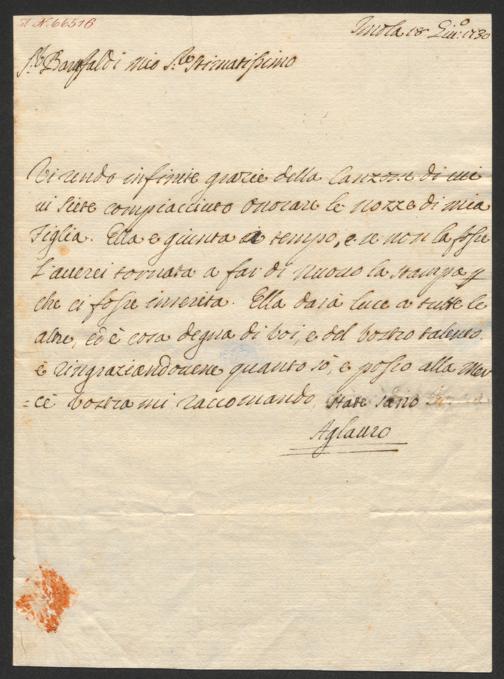 N. 66518
Imola 18 Giu.o 1730
Sr. Baruffaldi mio Sr. Stimatissimo
Vi rendo infinite grazie della Canzone di cui
vi siete compiacciuto onorare le nozze di mia
Figlia. Ella e giunta a tempo, e se non la fosse
l'averei tornata a far di nuovo la stampa p
che ci fosse inserita. Ella darà luce a tutte le
altre, ed è cosa degna di voi, e del vostro talento
e ringraziandovene quanto sò, e posso alla Mer
=cè vostra mi raccomando. State sano
Aglauro